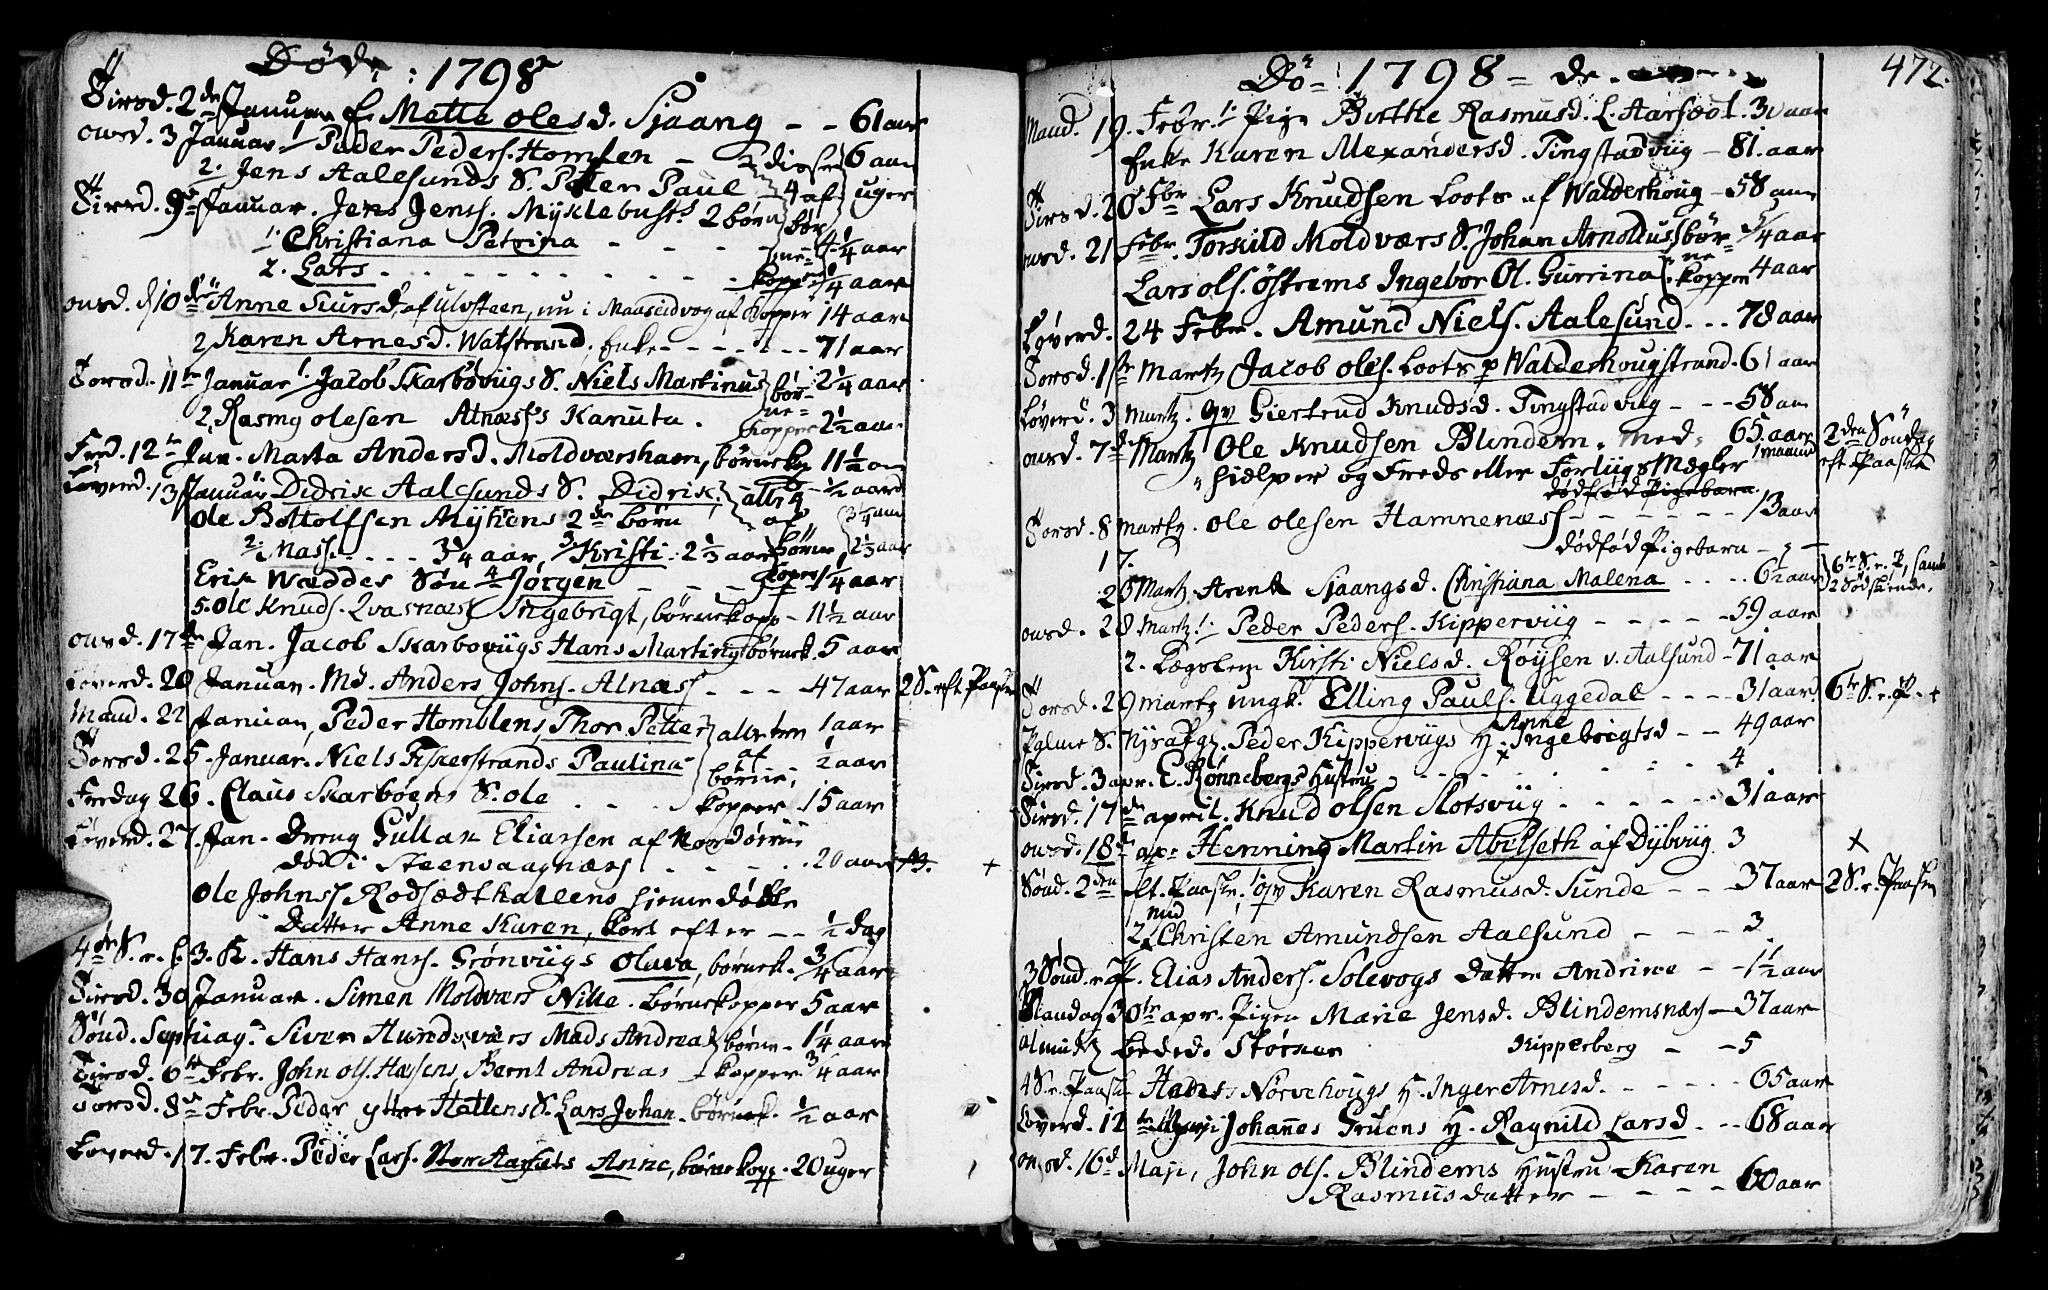 Døde : 1798
Tirsd. 2de Januar E. Mette olesd. Sjaang - - 61 aar
onsd. 3 Januar 1 Peder Peders. Homlen - 6 aar
2. Jens Aalesunds S. Peter Paul 4 uger
Tirsd. 9de Januar. Jens Jens. Myklebusts 2 børn
1. Christiana Petrina - - - - 4 1/4 aar
2. Lars - - - - - kopper 1/4 aar
onsd. d 10de Anne Siursd. af Ulvsteen, nu i Maaseidvog af Kopper 14 aar
2, Karen Arnesd. Watstrand, Enke - - - - - 71 aar
Torsd. 11te Januar 1. Jacob Skarbøviigs S. Niels Martinus bør- 2 1/4 aar
2, Rasmg olesen Alnæss's Kanuta. ne- kopper 2 1/2 aar
Fred. 12te Jan. Marta Andersd. Moldværshavn, børnekp 11 1/2 aar
Løverd. 13 Januar Didrik Aalesunds S. Didrik, 1/2 aar
Ole Bottolfsen Myhrens 2de børn af 3 1/4 aar
2. Mass - - - 3 1/4 aar, 3 Kristi. 2 1/3 aar børne 2 1/3 aar
Erik Wæddes Søn 4 Jørgen - - - koper 1 1/4 aar
5. Ole Knuds. Qvasnæs Ingebrigt, børnekopp - 11 1/2 aar
onsd. 17de Jan. Jacob Skarbøviigs Hans Martin børnek. 5 aar
Løverd. 20 Januar. Md. Anders Johns. Alnæss - - - 47 aar 2 S. eft Paaske
Mand. 22 Januar, Peder Homblens, Thor Petter 1 aar
Torsd. 25. Januar. Niels Fiskerstrands Paulina af 1/2 aar
Fredag 26. Claus Skarbøens S. ole - - - børne kopper 15 aar
Løverd. 27. Jan. Dreng Gullak Eliassen af Nordørsiu
død i Steensaagnæs - - - - 20 aar 13. +
Ole Johns Rødsædthallens hiemedøbte
Datter Anne Karen, kort efter - - 1/2 dag
4de S. e. h. 3. K. Hans Hans. Grønviigs Olava, børnek. 3/4 aar
Tirsd. 30 Januar. Simen Moldværs Nille. børnekopper 5 aar
Sønd. Septuag. Siver Hundsværs Mads Andrea børne- 1 1/4 aar
Tirsd. 6te Febr. John ols. Hæssens, Bernt Andreas kopper 3/4 aar
Torsd. 8de Febr. Peder yttre Hallens S. Lars Johan. børnek. 1/2 aar
Løverd. 17. Febr. Peder Lars. Nor Aarsæts Anne, børnekopp. 20 uger
Dø- 1798 - de. 472.
Mand. 19. Febr. 1. Pige Birthe Rasmusd. L. Aarsæt. 30 aar
Enke Karen Alexandersd. Tingstadviig - 81. aar
Tirsd. 20 Febr Lars Knudsen Loots af Walderhoug - 58 aar
onsd. 21 Febr. Torkild Moldværs S. Johan Arnoldus bør- 5/4 aar
Lars ols. Østrems Ingebor Ol. Gurrina ne- kopper 4 aar
Løverd. 24 Febr. Amund Niels. Aalesund. - - 78 aar
Torsd. 1ste Martz Jacob oles. Loots p Walderhougstrand. 61 aar
Løverd. 3 Martz. qv Giertrud Knudsd. Tingstadviig - - - 58 aar
onsd. 7de Martz Ole Knudsen Blindem, med- 65. aar 2den Søndag
hielper og Freds eller Forliigs Mægler 1 maaned eft Paaske
dødfød Pigebarn
Torsd. 8 martz. ole olesen Hamnenæss - - - - 13 aar
17. dødfød Pigebarn - - -
26 Martz. Arent Sjaangsd. Christiana Malena - - - - 6 1/2 aar 6te S. e. P, samt
onsd. 28 Martz. 1. Peder Peders. Kipperviig - - - - - 59 aar 2 Sødskende.
2. Lægslem Kirsti Nielsd. Røysen v. Aalsund - 71 aar
Torsd. 29 martz ungk. Elling Pauls. Uggedal - - - - 31 aar. 6te S. e. P. +
Palme S. Peder Kipperviigs H. Anne Ingebrigtsd - - 49 aar
Tirsd. 3 apr. E. Rønnebergs Hustru - - - - 4
Tirsd. 17de april. Knud olsen Slotsviig - - - - - 31 aar
onsd. 18de apr. Henning Martin Abelseth af Dybviig 3 +
Sønd. 2den eft. Paaske. 1. qv Karen Rasmusd. Sunde - - 37 aar 2 S. e. Paaske
2 Christen Amundsen Aalsund - - - 3
3 Sønd. e P. Elias Anders. Solevogs Datter Andrine - - 1 1/2 aar
Mandag 30te apr. Pigen Marie Jensd. Blindemsnæs - 37 aar
Kipperberg - - 5
4 S. e. Paaske Hans Nørvehougs H. Inger Arnesd. - - - - 65 aar
Løverd. 12te Maji Johannes Gruens H. Ragnild Larsd. - - 68 aar
onsd. 16d Maji, John ols. Blindems Hustru Karen
Rasmusdatter - - - - 60 aar